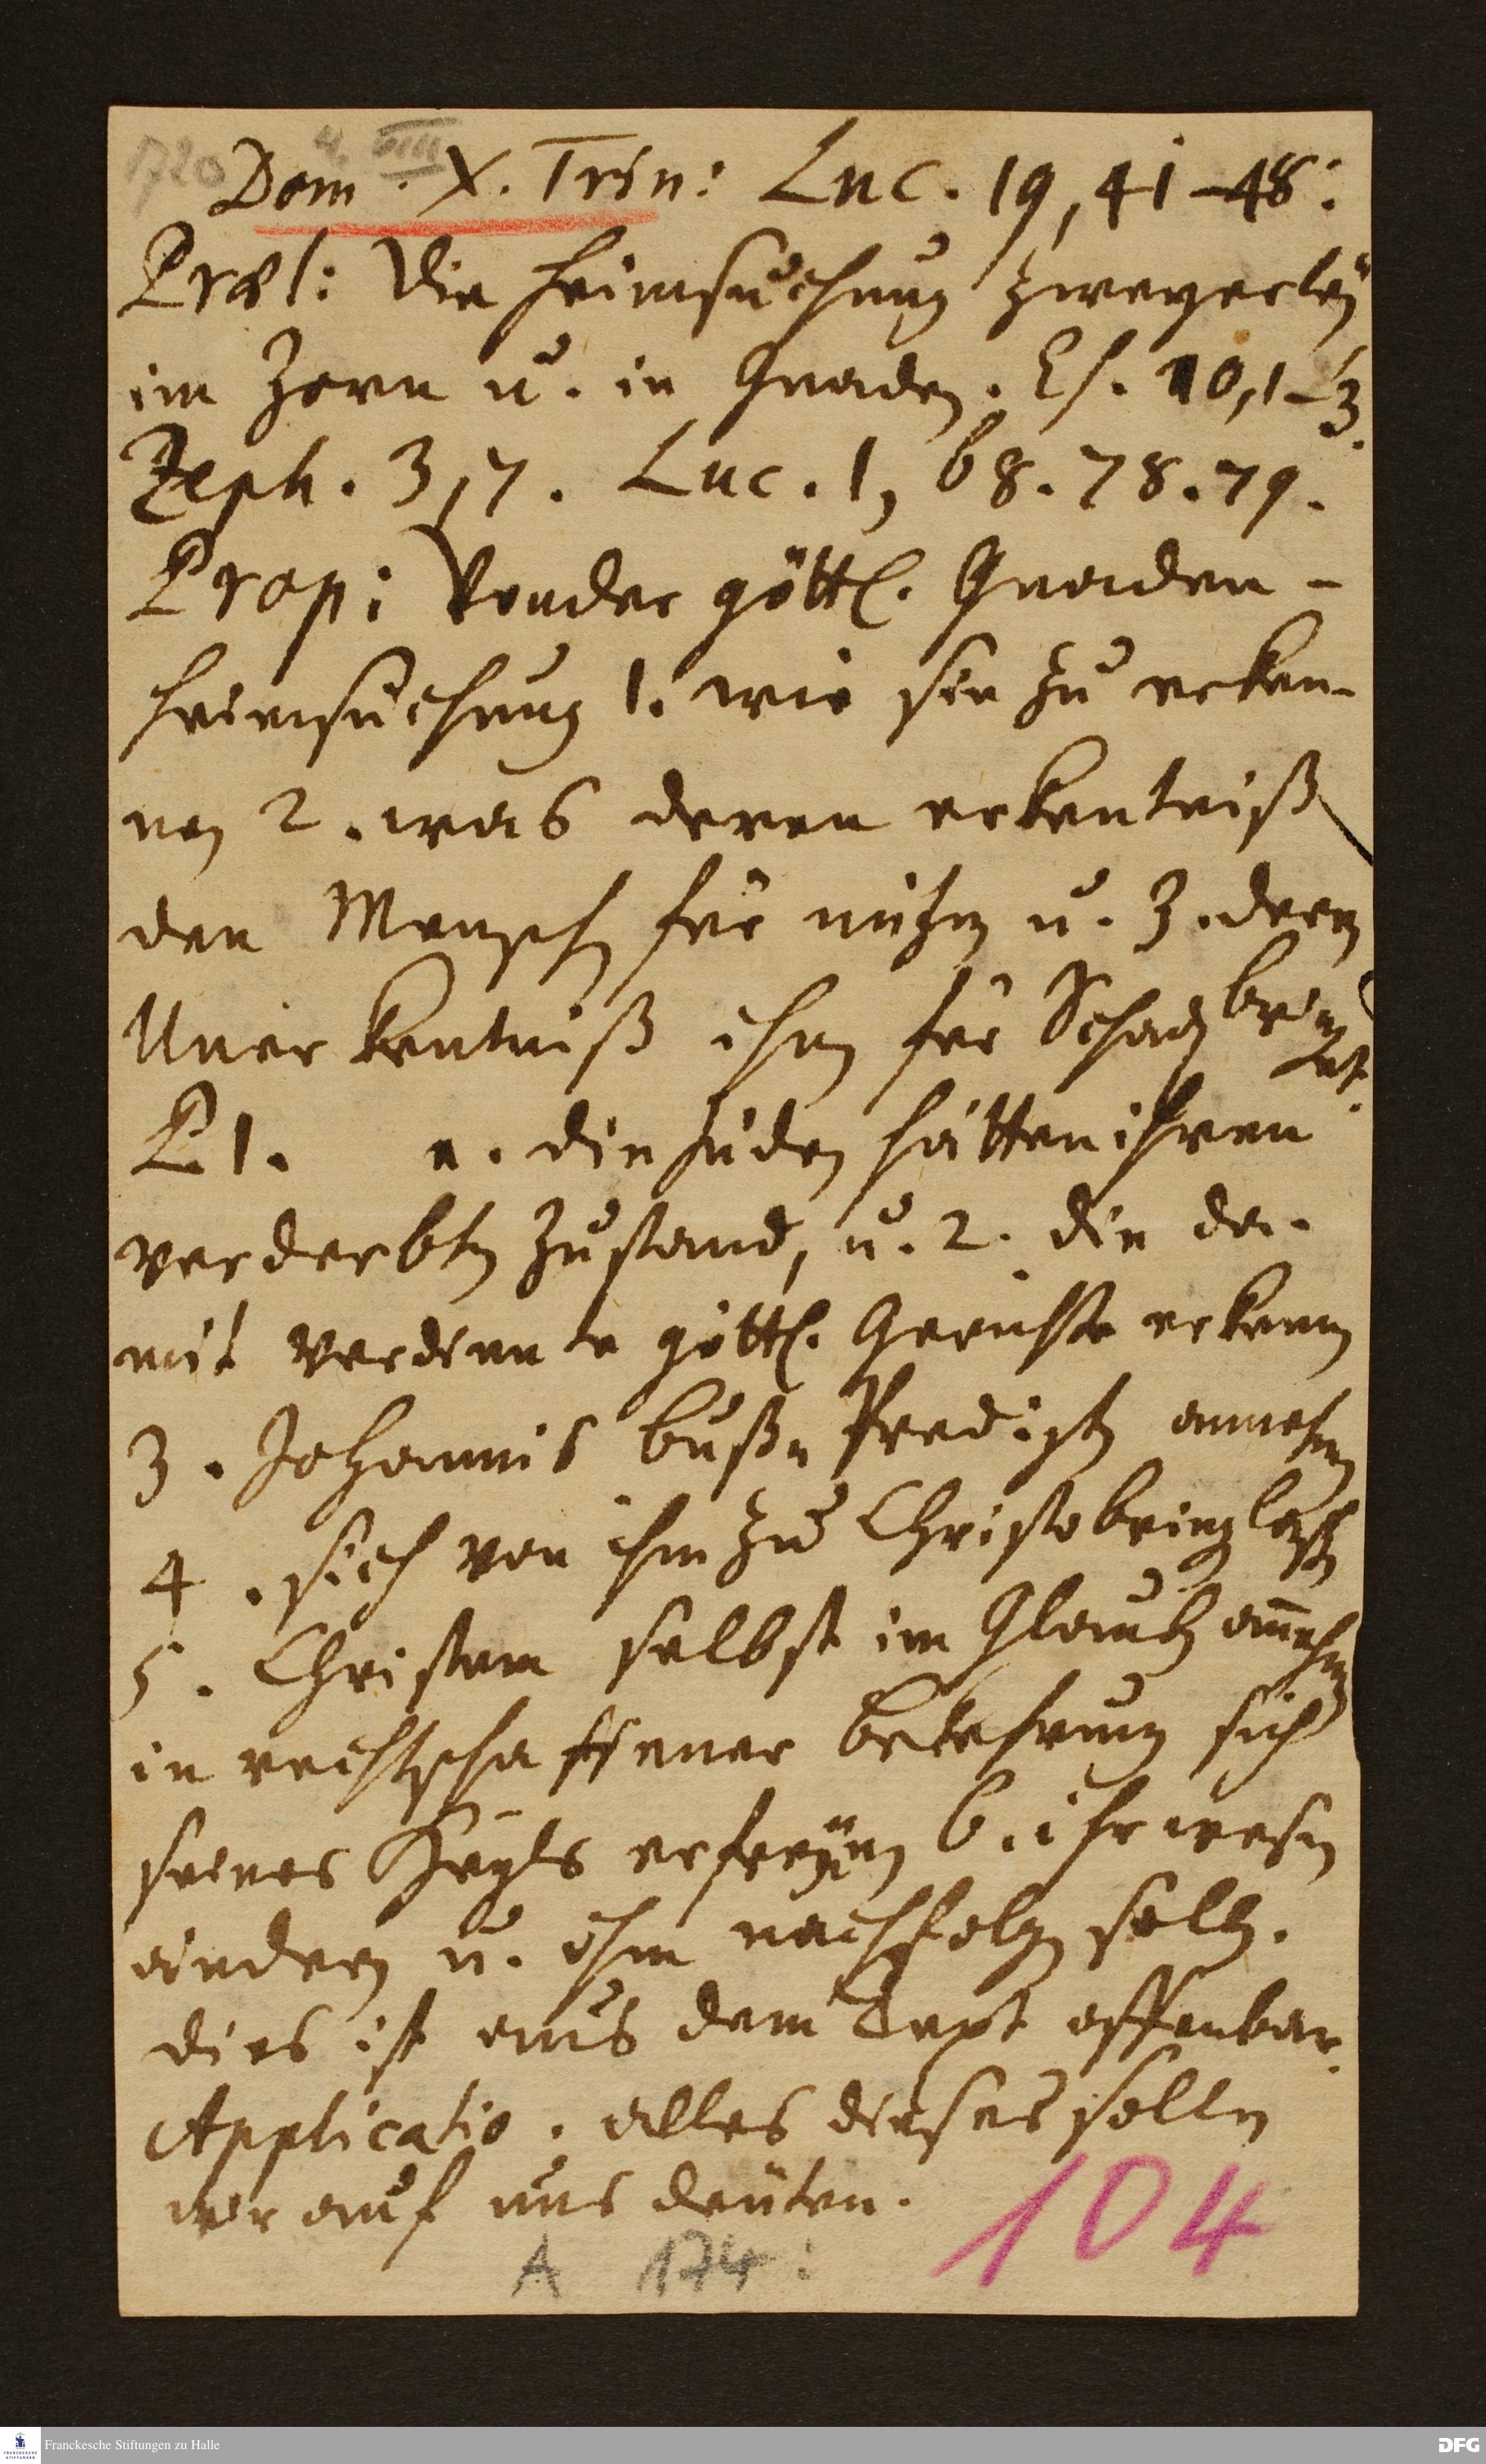 1720 4. VIII
Dom. X. Trin: Luc. 19, 41-48:
Präl: Die heimsuchung zweyerleÿ
im Zorn u. in Gnaden. Es. 10,1-3.
Zeph. 3,7. Luc. 1, 68. 78. 79.
Prop: Von der göttl. Gnaden-
heimsuchung 1. wie sie zu erken-
nen 2. was deren erkentniß
den Menschen für nutzen u. 3. deren
Unerkentniß ihnen für Schaden bringt
P. 1. die Juden hätten ihren
verderbten Zustand, u. 2. die da-
mit verdiente göttl. Gerichte erkennen
3. Johannis buß-Predigten annehmen
4. sich von ihm zu Christo bringen lassen
5. Christum selbst im Glauben annehmen
in rechtschaffener bekehrung sich
seines Heyls erfreüen 6. ihr wesen
ändern u. ihm nachfolgen sollen.
dies ist aus dem Text offenbar.
Applicatio. alles dieses sollen
wir auf uns deuten.
104
A 174:
Franckesche Stiftungen zu Halle
DFG